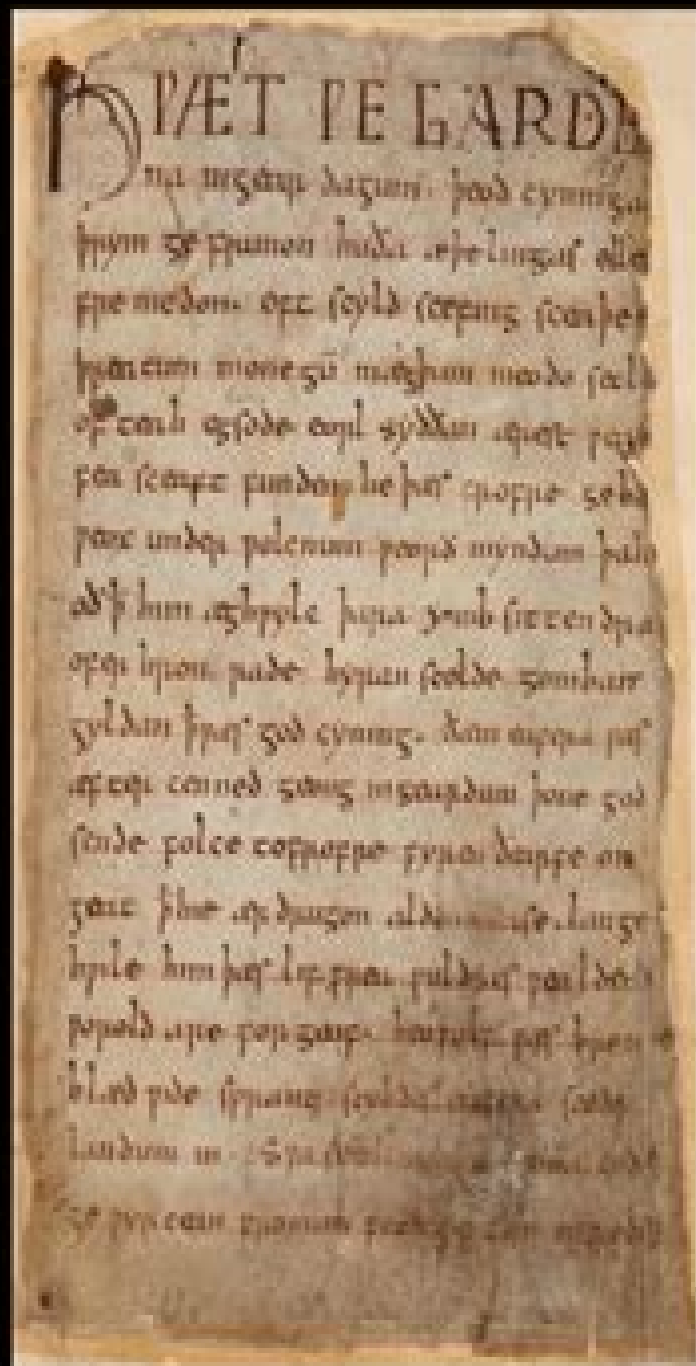 HǷÆT ǷE GARDE
na ingear dagum. þeod cyninga
þrym ge frunon huða æþelingas elle
fre medon. oft scyld scefing sceaþe
þreatum monegū mægþum meodo setl
of teah egsode eorl syððan ærest ƿear
fea sceaft funden he þæs frofre geba
ƿeox under ƿolcnum ƿeorð myndum þah
oð ꝥ him æghƿylc þara ymb sittendra
ofer hron rade hyran scolde gomban
gyldan ꝥ ƿæs god cyning. ðæm eafera ƿæs
æfter cenned geong ingeardum þone god
sende folce tofrofre fyren ðearfe on
geat ꝥ hie ær drugon aldor ase. lange
hƿile him þæs lif frea ƿuldres ƿealdend
ƿorold are for geaf. beoƿulf ƿæs breme
blæd ƿide sprang scyldes eafera scede
landum in
ge ƿyrcean fromum feoh